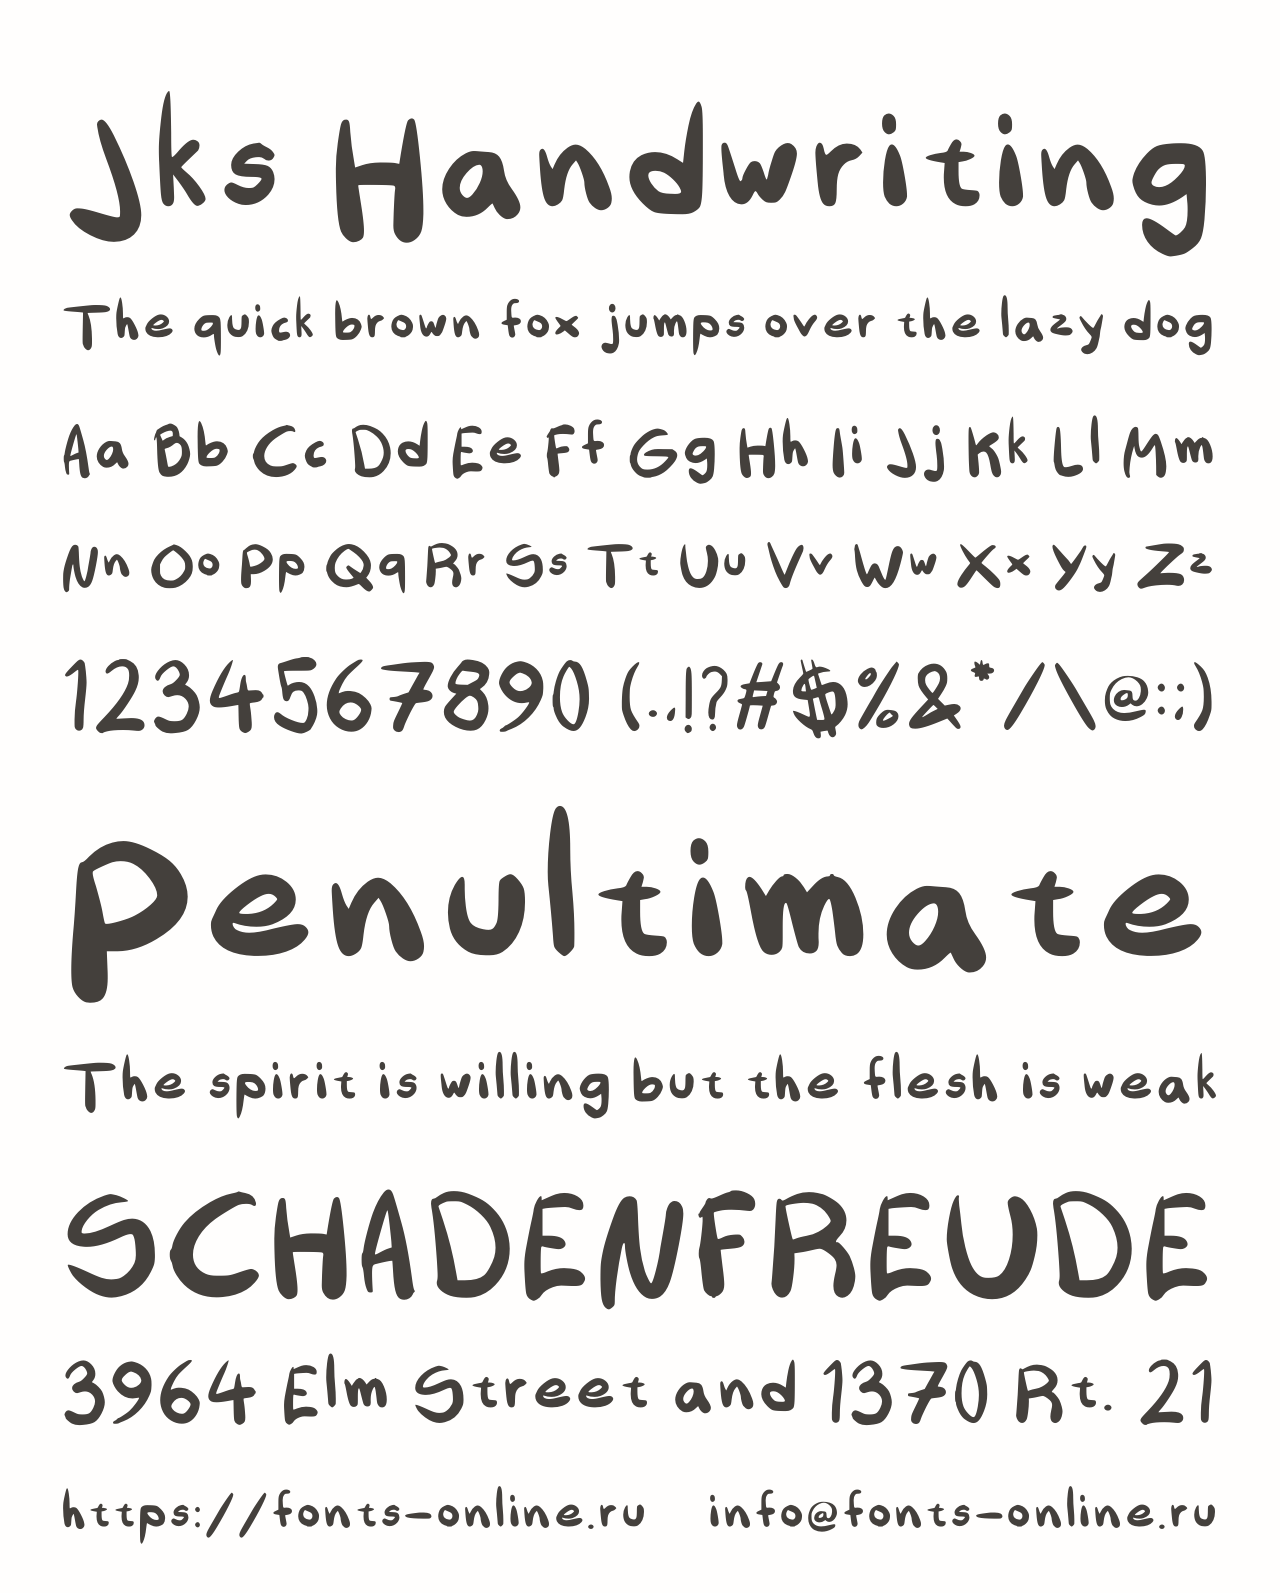 Jks Handwriting
The quick brown fox jumps over the lazy dog
Aa Bb Cc Dd Ee Ff Gg Hh Ii Jj Kk Ll Mm
Nn Oo Pp Qq Rr Ss Tt Uu Vv Ww Xx Yy Zz
1234567890 (.,!?#$%&*/\@:;)
Penultimate
The spirit is willing but the flesh is weak
SCHADENFREUDE
3964 Elm Street and 1370 Rt. 21
https://fonts-online.ru info@fonts-online.ru